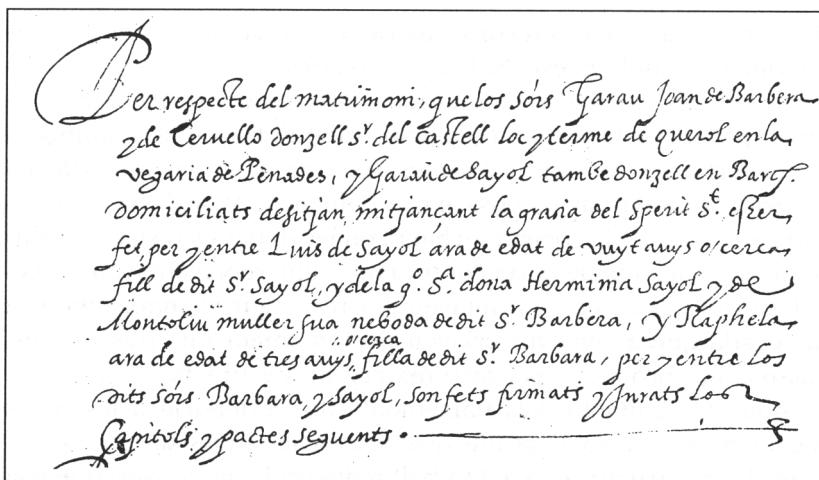 Per respecte del matrimoni, que los sors Garau Joan de Barbera
y de Cervello donzell Sr. del castell loc y terme de querol en la
vegaria de Penades, y Garau de Sayol tambe donzell en Barca.
domiciliats desitjan mitjançant la gratia del Sperit St. esser
fet, per y entre Luis de Sayol ara de edat de vuyt anys o cerca
fill de dit Sr. Sayol, y de la qo. Sa. dona Herminia Sayol y de
Montoliu muller sua neboda de dit Sr. Barbera, y Raphela
ara de edat de tres anys o cerca, filla de dit Sr. Barbara, per y entre los
dits sors Barbara, y Sayol, son fets firmats y Jurats los
Capitols y pactes seguents.